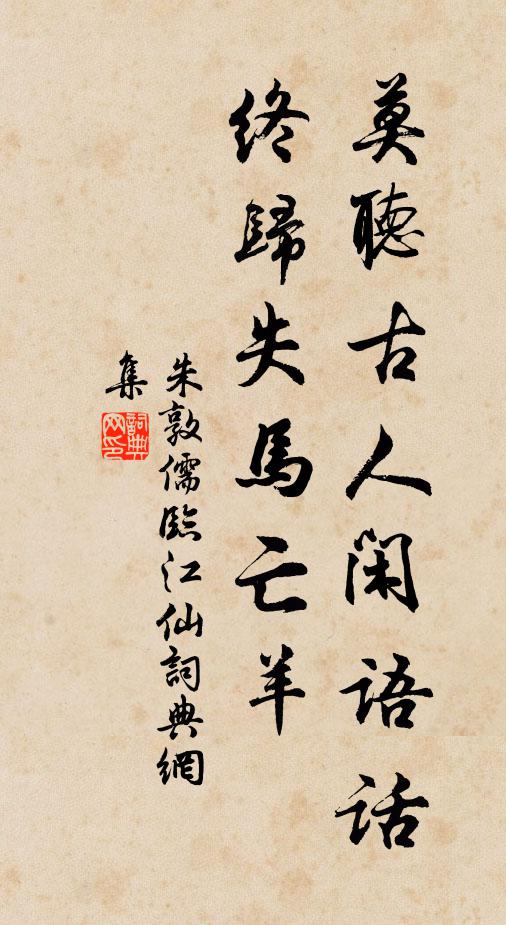 莫聽古人閑語話
終歸失馬亡羊
朱敦儒臨江仙詞典網
集
詞典网印